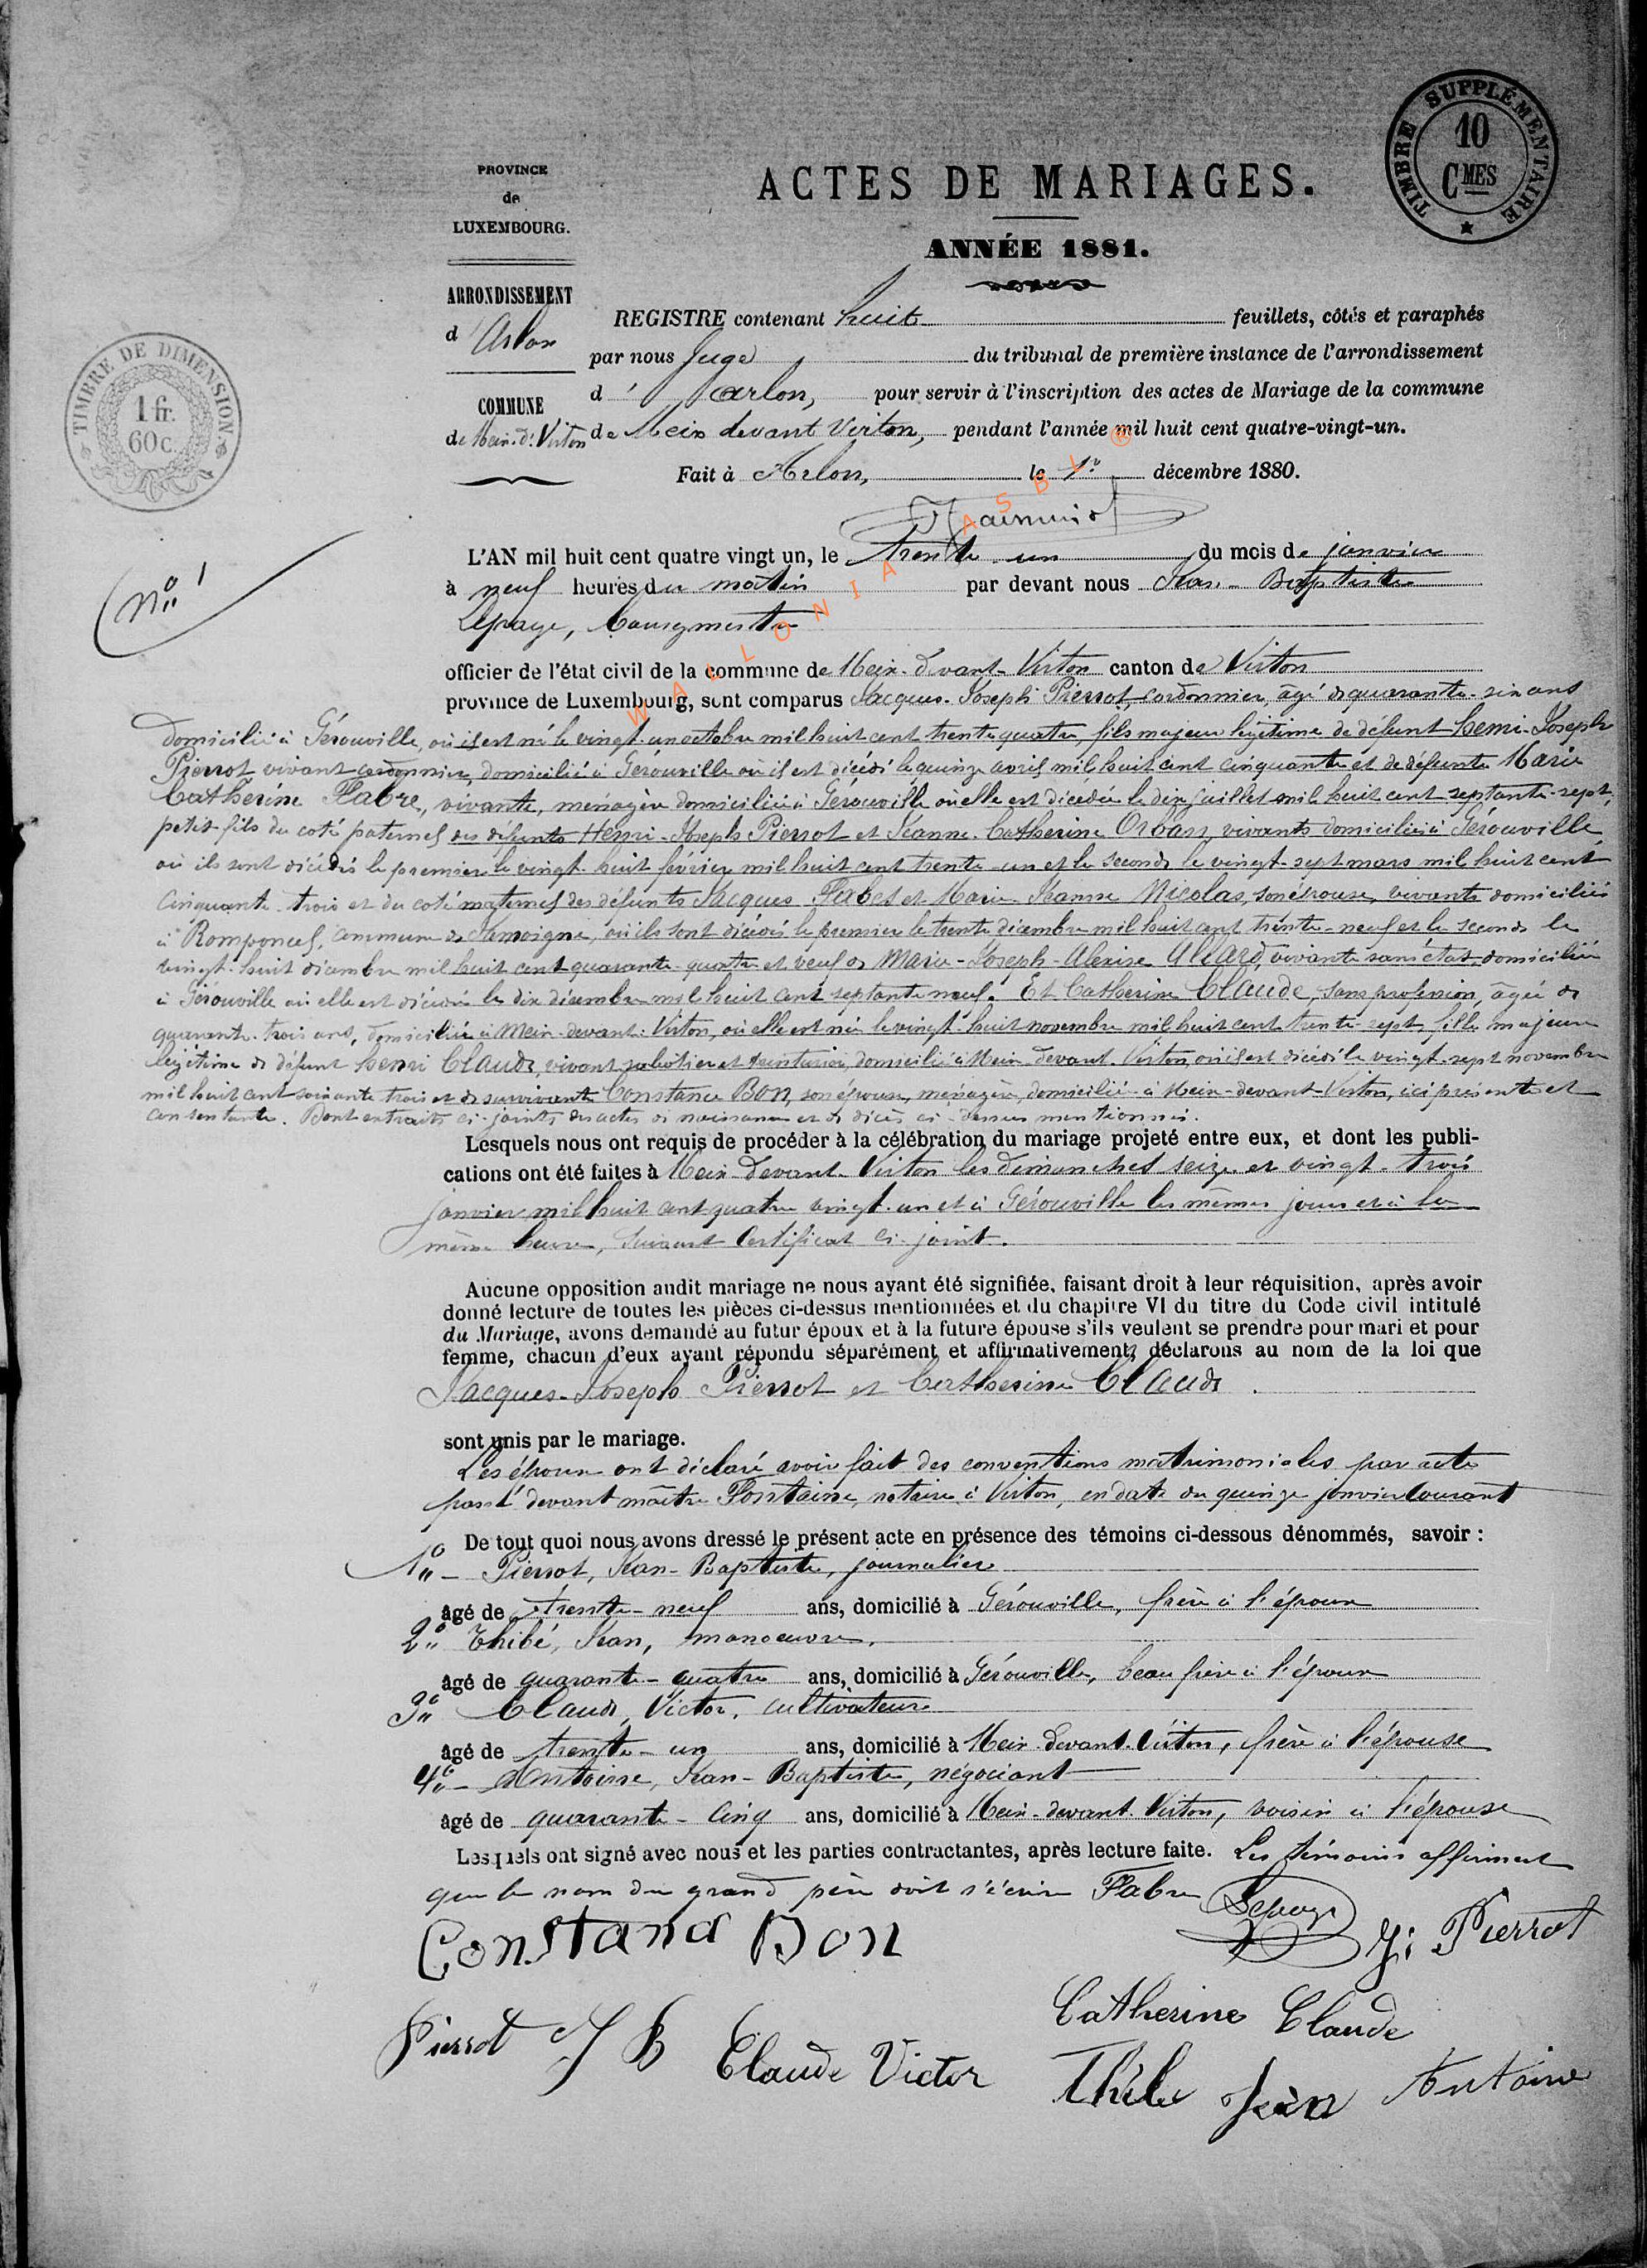 TIMBRE SUPPLÉMENTAIRE
10
CMES
PROVINCE
de
LUXEMBOURG.
ACTES DE MARIAGES.
ANNÉE 1881.
ARRONDISSEMENT
d'Arlon
COMMUNE
de Meix-dt Virton
TIMBRE DE DIMENSION
1 fr.
60 c.
REGISTRE contenant huit feuillets, côtés et paraphés
par nous Juge du tribunal de première instance de l'arrondissement
d'Arlon, pour servir à l'inscription des actes de Mariage de la commune
de Meix devant Virton, pendant l'année mil huit cent quatre-vingt-un.
Fait à Arlon, le 1r décembre 1880.
WALLONIA ASBL ®
No 1
L'AN mil huit cent quatre vingt un, le trente un du mois de janvier
à neuf heures du matin par devant nous Jean-Baptiste
Lepage, bourgmestre
officier de l'état civil de la commune de Meix-devant-Virton canton de Virton
province de Luxembourg, sont comparus Jacques-Joseph Pierrot, cordonnier, âgé de quarante-six ans
domicilié à Gérouville, où il est né le vingt-un octobre mil huit cent trente quatre, fils majeur légitime de défunt Henri-Joseph
Pierrot vivant cordonnier, domicilié à Gérouville où il est décédé le quinze avril mil huit cent cinquante et de défunte Marie
Catherine Flabre, vivante, ménagère domiciliée à Gérouville où elle est décédée le dix juillet mil huit cent septante-sept,
petit-fils du coté paternel des défunts Henri-Joseph Pierrot et Jeanne-Catherine Orban, vivants domiciliés à Gérouville
où ils sont décédés le premier le vingt-huit février mil huit cent trente-un et la seconde le vingt-sept mars mil huit cent
cinquante-trois et du coté maternel des défunts Jacques Flabes et Marie Jeanne Nicolas, son épouse, vivants domiciliés
à Romponcel, commune de Jamoigne, où ils sont décédés le premier le trente décembre mil huit cent trente-neuf et la seconde le
vingt-huit décembre mil huit cent quarante-quatre et veuf de Marie-Joseph-Alexise Allard, vivante sans état, domiciliée
à Gérouville où elle est décédée le dix décembre mil huit cent septante neuf. Et Catherine Claude, sans profession, âgée de
quarante-trois ans, domiciliée à Meix-devant-Virton, où elle est née le vingt-huit novembre mil huit cent trente-sept, fille majeure
légitime de défunt Henri Claude, vivant cabaretier et teinturier, domicilié à Meix-devant-Virton, où il est décédé le vingt-sept novembre
mil huit cent soixante trois et de survivante Constance Bon, son épouse, ménagère, domiciliée à Meix-devant-Virton, ici présente et
consentante. Dont extraits ci-joints des actes de naissance et de décès ci-dessus mentionnés.
Lesquels nous ont requis de procéder à la célébration du mariage projeté entre eux, et dont les publi-
cations ont été faites à Meix-devant-Virton les dimanches seize et vingt-trois
janvier mil huit cent quatre vingt-un et à Gérouville les mêmes jours et à la
même heure, suivant certificat ci-joint.
Aucune opposition audit mariage ne nous ayant été signifiée, faisant droit à leur réquisition, après avoir
donné lecture de toutes les pièces ci-dessus mentionnées et du chapitre VI du titre du Code civil intitulé
du Mariage, avons demandé au futur époux et à la future épouse s'ils veulent se prendre pour mari et pour
femme, chacun d'eux ayant répondu séparément et affirmativement, déclarons au nom de la loi que
Jacques-Joseph Pierrot et Catherine Claude.
sont unis par le mariage.
Les époux ont déclaré avoir fait des conventions matrimoniales par acte
passé devant maître Fontaine, notaire à Virton, en date du quinze janvier courant
De tout quoi nous avons dressé le présent acte en présence des témoins ci-dessous dénommés, savoir :
1o Pierrot, Jean-Baptiste, journalier
âgé de trente-neuf ans, domicilié à Gérouville, frère à l'époux
2o Thibé, Jean, manoeuvre.
âgé de quarante-quatre ans, domicilié à Gérouville, beau frère à l'époux
3o Claude, Victor, cultivateur
âgé de trente-un ans, domicilié à Meix-devant-Virton, frère à l'épouse
4o Antoine, Jean-Baptiste, négociant
âgé de quarante-cinq ans, domicilié à Meix-devant-Virton, voisin à l'épouse
Lesquels ont signé avec nous et les parties contractantes, après lecture faite. Les témoins affirment
que le nom du grand père doit s'écrire Flabre
Lepage
Constand Bon
J: Pierrot
Catherine Claude
Pierrot J B
Claude Victor
Thibé Jean
Antoine